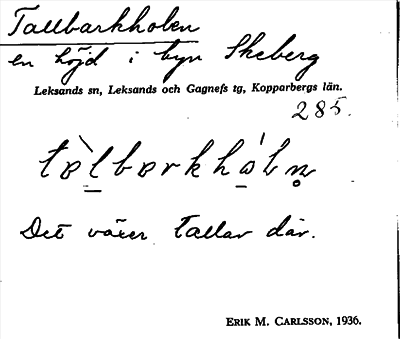 Tallbarkholen
en höjd i byn Skeberg
Leksands sn, Leksands och Gagnefs tg, Kopparbergs län.
285.
tɐ̀l̠bɐrkhɑ̠́ln̥
Det växer tallar där.
ERIK M. CARLSSON, 1936.